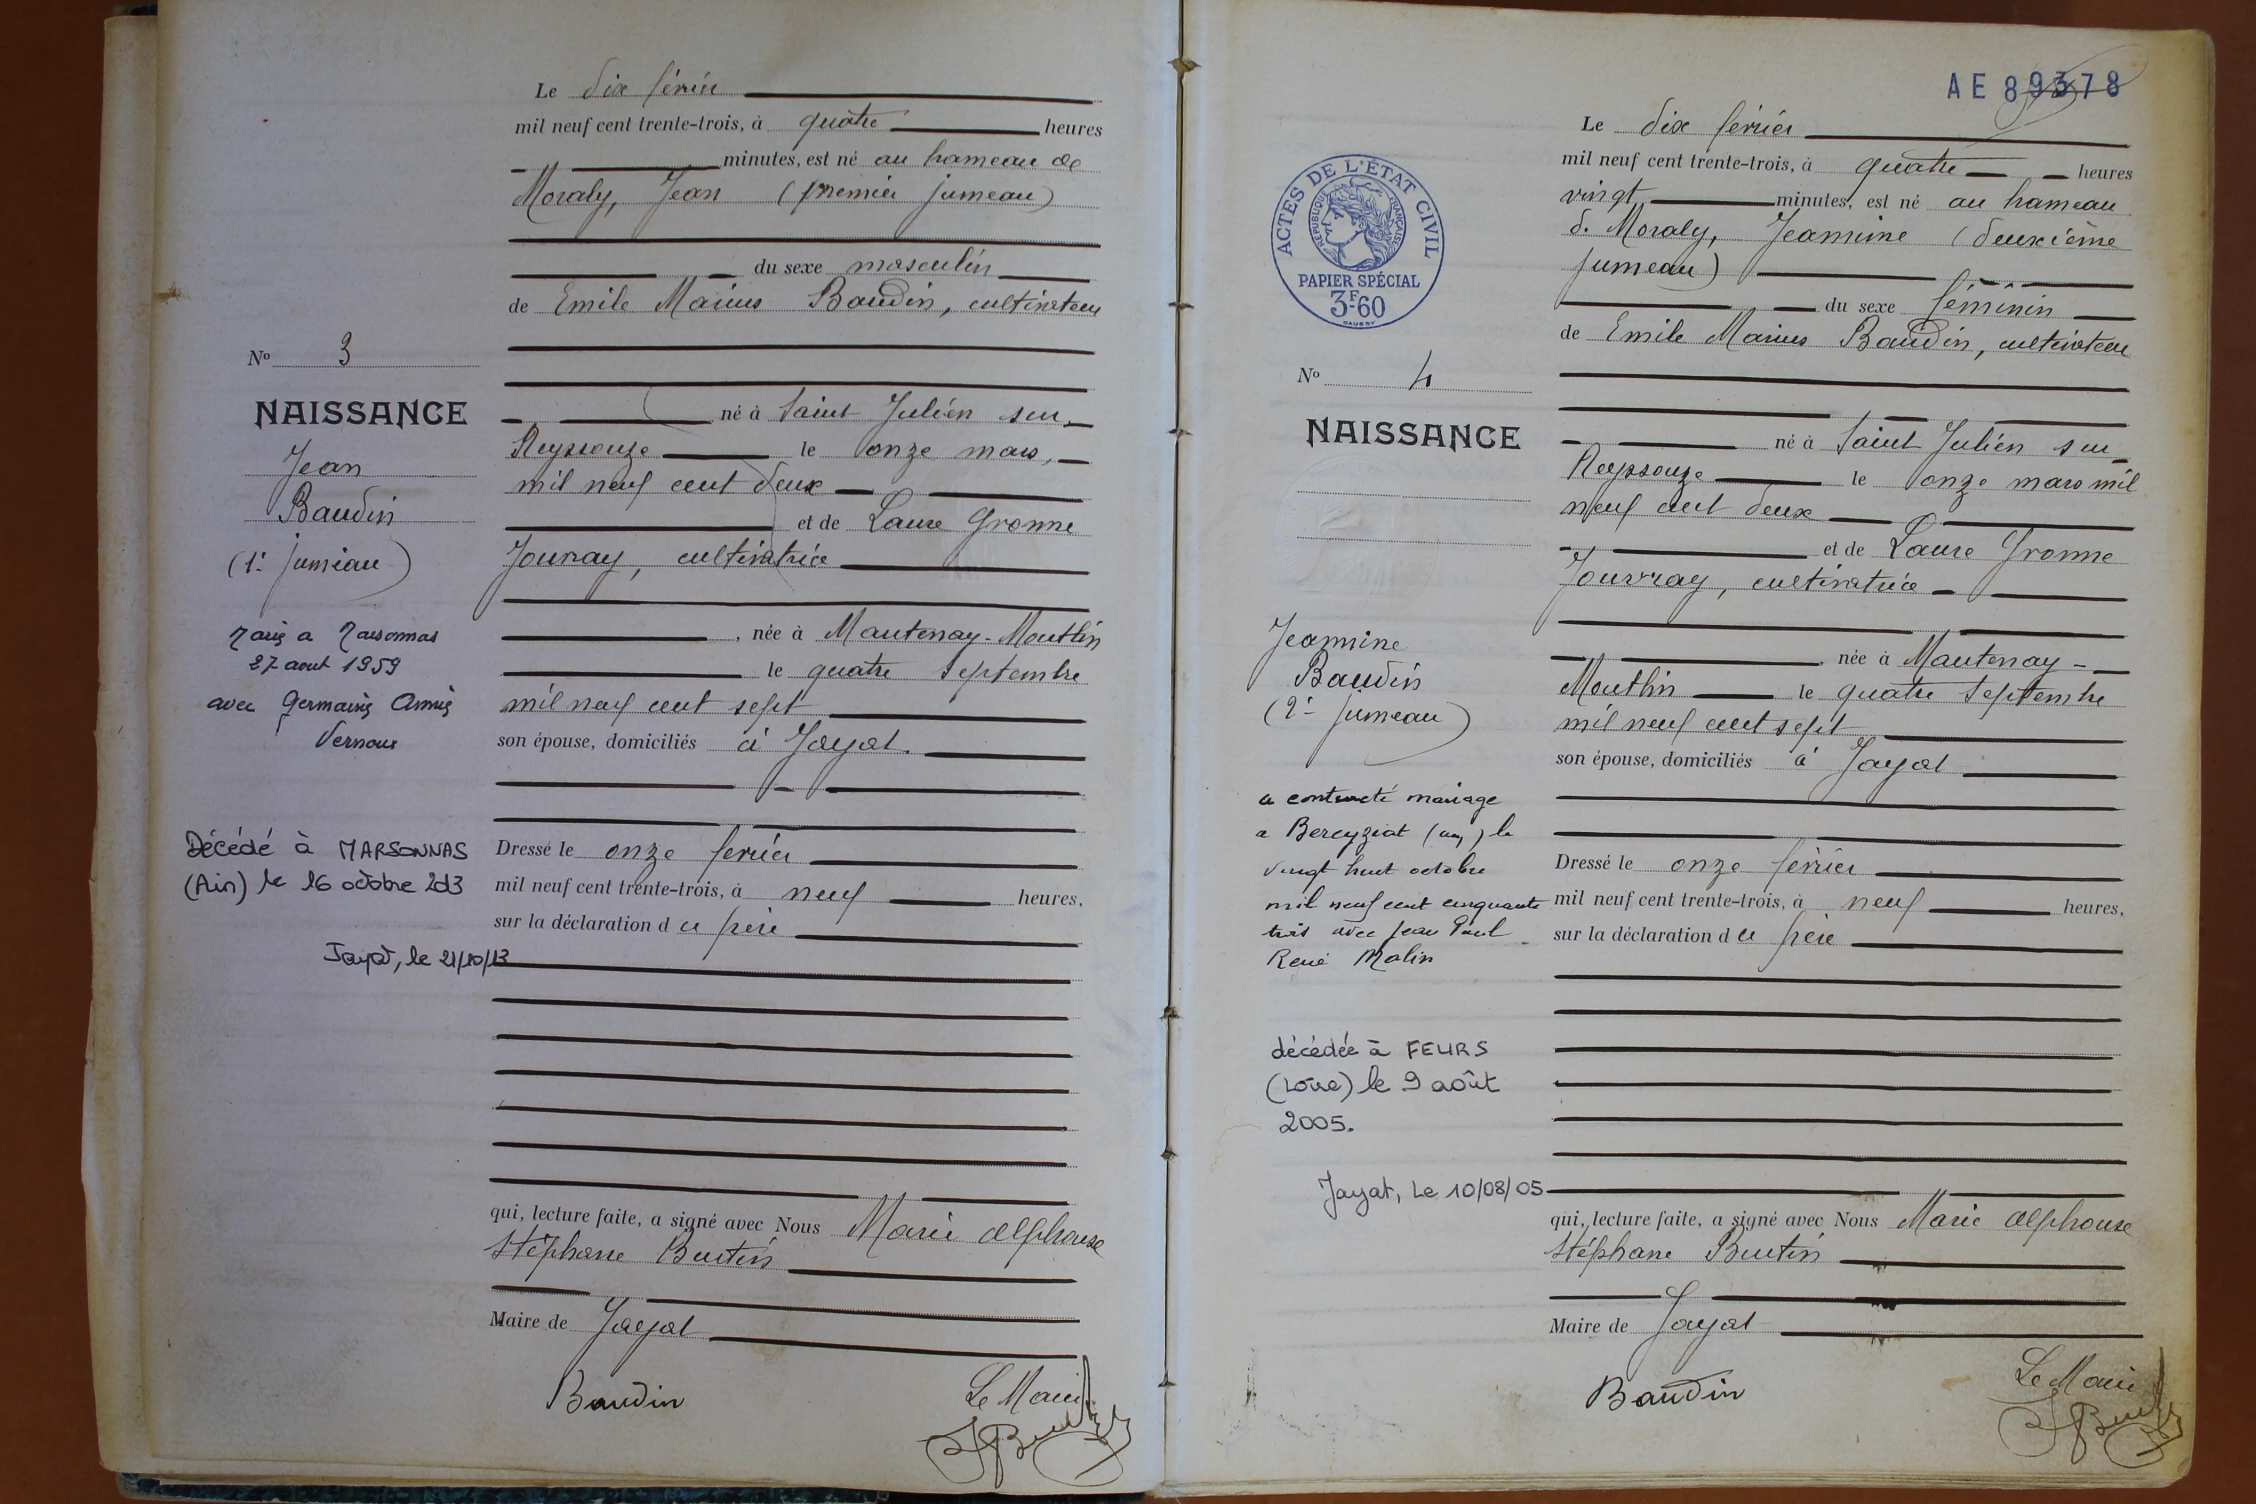 Le dix février
mil neuf cent trente-trois, à quatre heures
minutes, est né au hameau de
Moraly, Jean (premier jumeau)
du sexe masculin
de Emile Marius Baudin, cultivateur
né à Saint Julien sur
Reyssouze le onze mars,
mil neuf cent deux
et de Laure Yvonne
Jouvray, cultivatrice
, née à Mantenay-Montlin
le quatre septembre
mil neuf cent sept
son épouse, domiciliés à Jayat.
Dressé le onze février
mil neuf cent trente-trois, à neuf heures,
sur la déclaration du père
qui, lecture faite, a signé avec Nous Marie Alphonse
Stéphane Buetin
Maire de Jayat
Baudin
Le Maire
No 3
NAISSANCE
Jean
Baudin
(1r jumeau)
Marié a Marsonnas
27 aout 1959
avec Germaine Annie
Vernoux
Décédé à MARSONNAS
(Ain) le 16 octobre 2013
Jayat, le 21/10/13
AE 89378
Le dix février
mil neuf cent trente-trois, à quatre heures
vingt minutes, est né au hameau
de Moraly, Jeannine (deuxième
jumeau)
du sexe féminin
de Emile Marius Baudin, cultivateur
né à Saint Julien sur
Reyssouze le onze mars mil
neuf cent deux
et de Laure Yvonne
Jouvray, cultivatrice
, née à Mantenay-
Montlin le quatre septembre
mil neuf cent sept
son épouse, domiciliés à Jayat
Dressé le onze février
mil neuf cent trente-trois, à neuf heures,
sur la déclaration du père
qui, lecture faite, a signé avec Nous Marie Alphonse
Stéphane Buetin
Maire de Jayat
Baudin
Le Maire
ACTES DE L'ÉTAT CIVIL
RÉPUBLIQUE FRANÇAISE
PAPIER SPÉCIAL
3F-60
No 4
NAISSANCE
Jeannine
Baudin
(2e jumeau)
a contracté mariage
a Bereyziat (Ain) le
vingt huit octobre
mil neuf cent cinquante
trois avec Jean Paul
René Malin
décédée à FEURS
(Loire) le 9 août
2005.
Jayat, Le 10/08/05